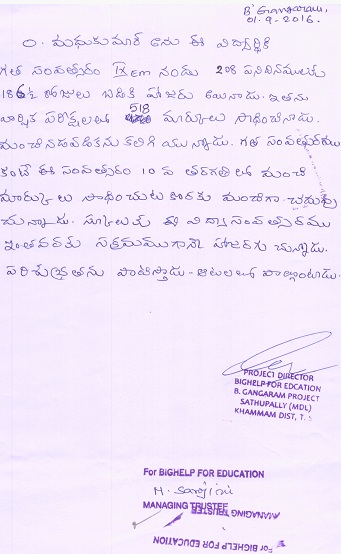 B' Gangaram,
01.9.2016.
O. మధుకుమార్ అను ఈ విద్యార్థికి
గత సంవత్సరం IX em నందు 208 పనిదినములకు
186½ రోజులు బడికి హాజరు అయినాడు. ఇతను
వార్షిక పరీక్షలలో 518 మార్కులు సాధించినాడు.
మంచి నడవడికను కలిగి యున్నాడు. గత సంవత్సరము
కంటే ఈ సంవత్సరం 10 వ తరగతిలో మంచి
మార్కులు సాధించుట కొరకు మంచిగా చదువు
చున్నాడు. స్కూలుకు ఈ విద్యా సంవత్సరము
ఇంతవరకు సక్రమముగానే హాజరగుచున్నాడు.
పరిశుభ్రతను పాటిస్తాడు - ఆటలలో పాల్గొంటాడు.
PROJECT DIRECTOR
BIGHELP FOR EDCATION
B. GANGARAM PROJECT
SATHUPALLY (MDL)
KHAMMAM DIST, T. S
For BIGHELP FOR EDUCATION
MANAGING TRUSTEE
MANAGING TRUSTEE
For BIGHELP FOR EDUCATION